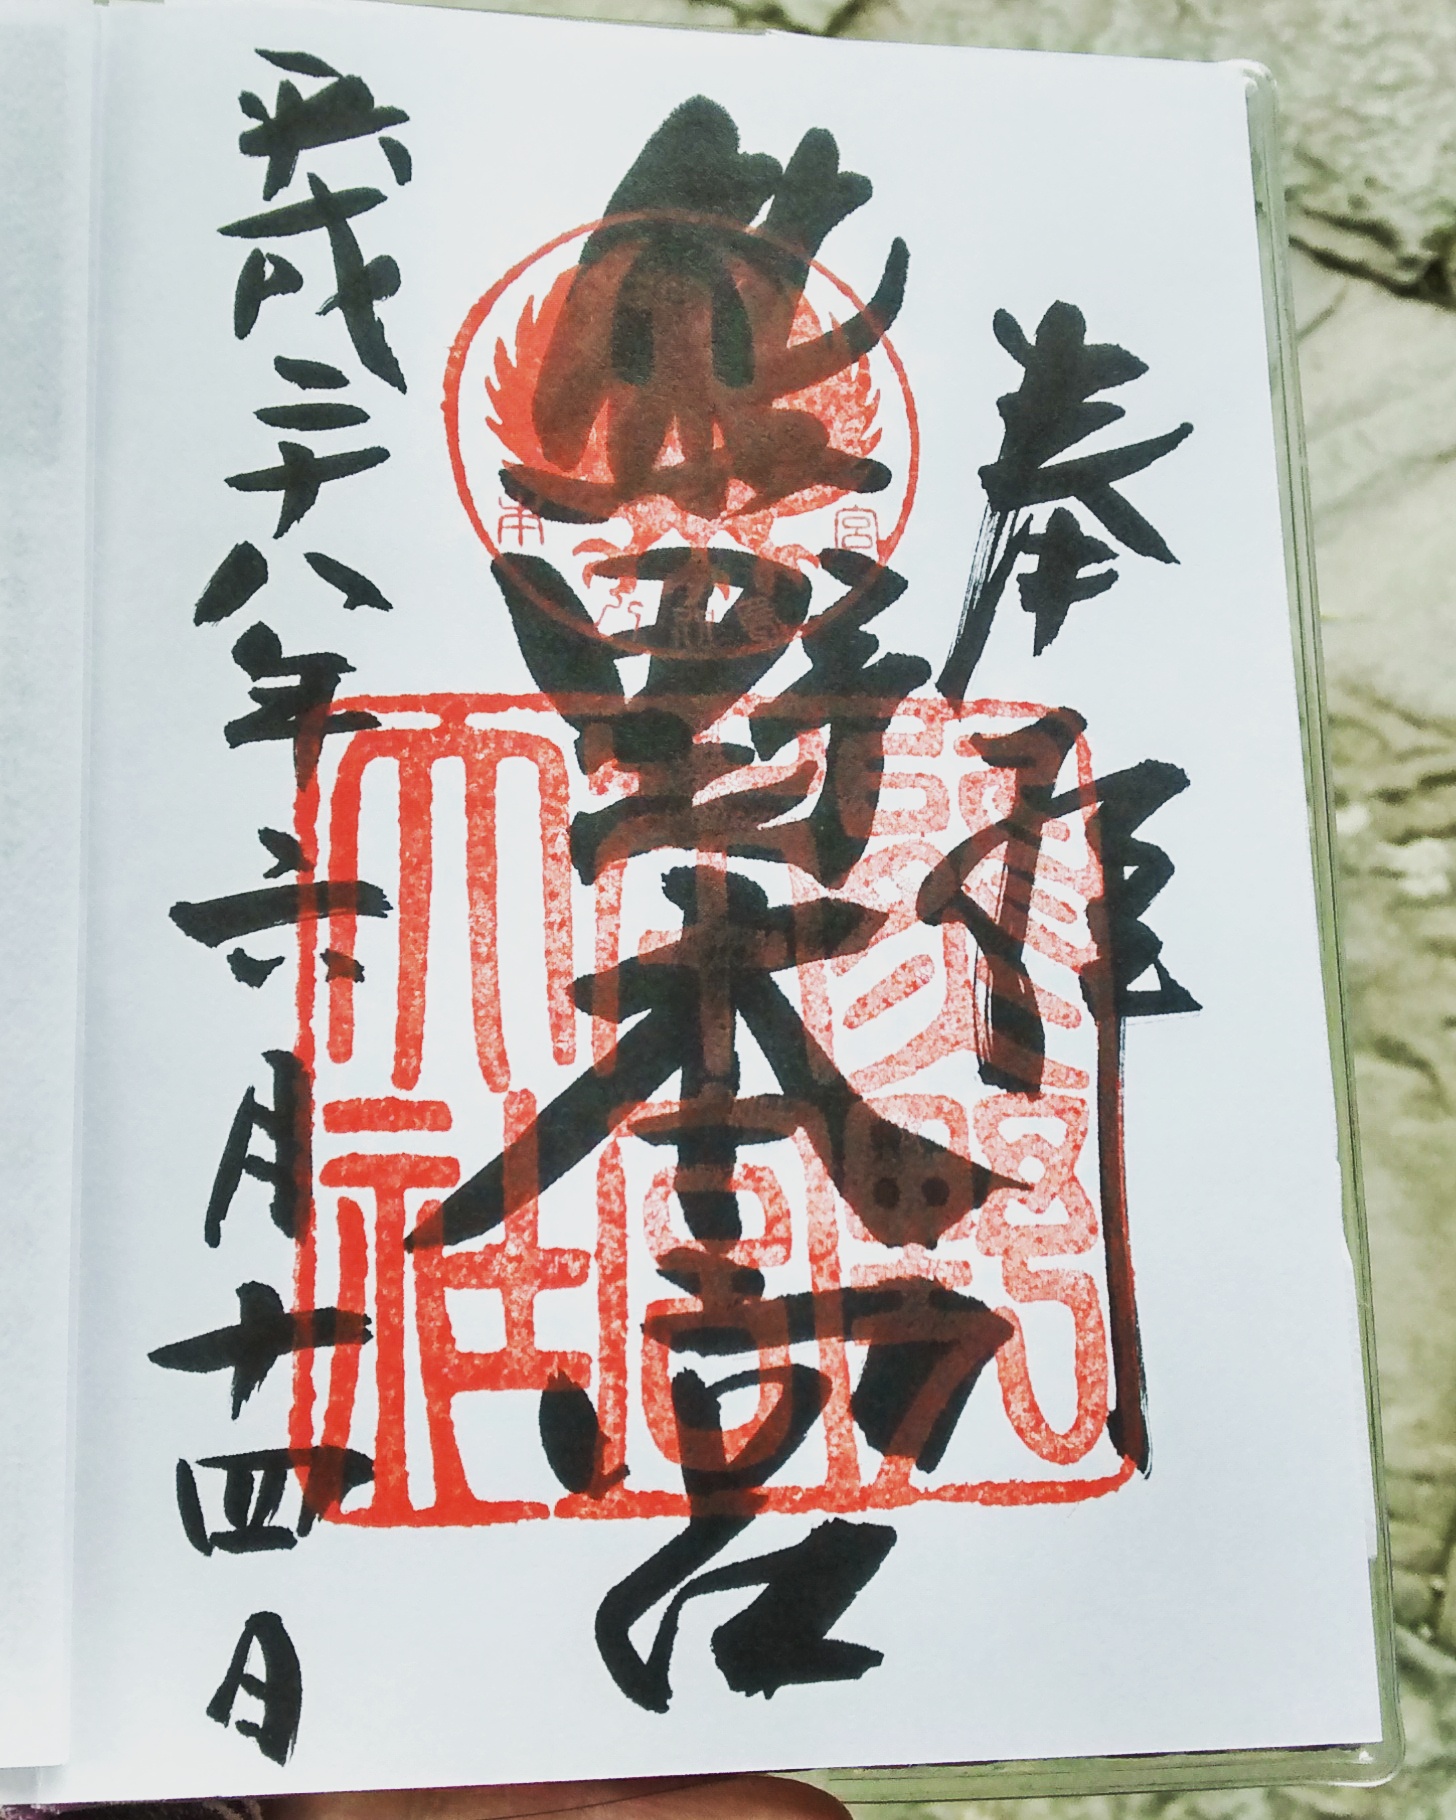 奉拝
熊野本宮
平成二十八年六月十四日
本 宮
熊野
本宮
大社